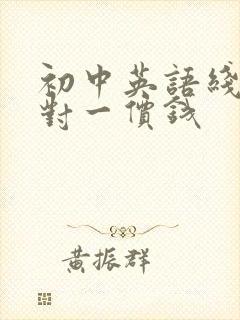 初中英語綫
對一價錢
黄振群